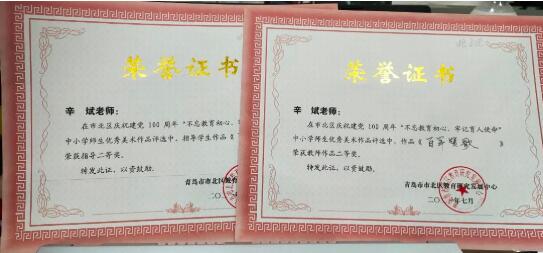 荣誉证书
辛 斌老师：
在市北区庆祝建党 100 周年“不忘教育初心、
中小学师生优秀美术作品评选中，指导学生作品《
荣获指导二等奖。
特发此证，以资鼓励。
青岛市市北区教育
荣誉证书
辛 斌老师：
在市北区庆祝建党 100 周年“不忘教育初心、牢记育人使命”
中小学师生优秀美术作品评选中，作品《 》
荣获教师作品二等奖。
特发此证，以资鼓励。
青岛市市北区教育研究发展中心